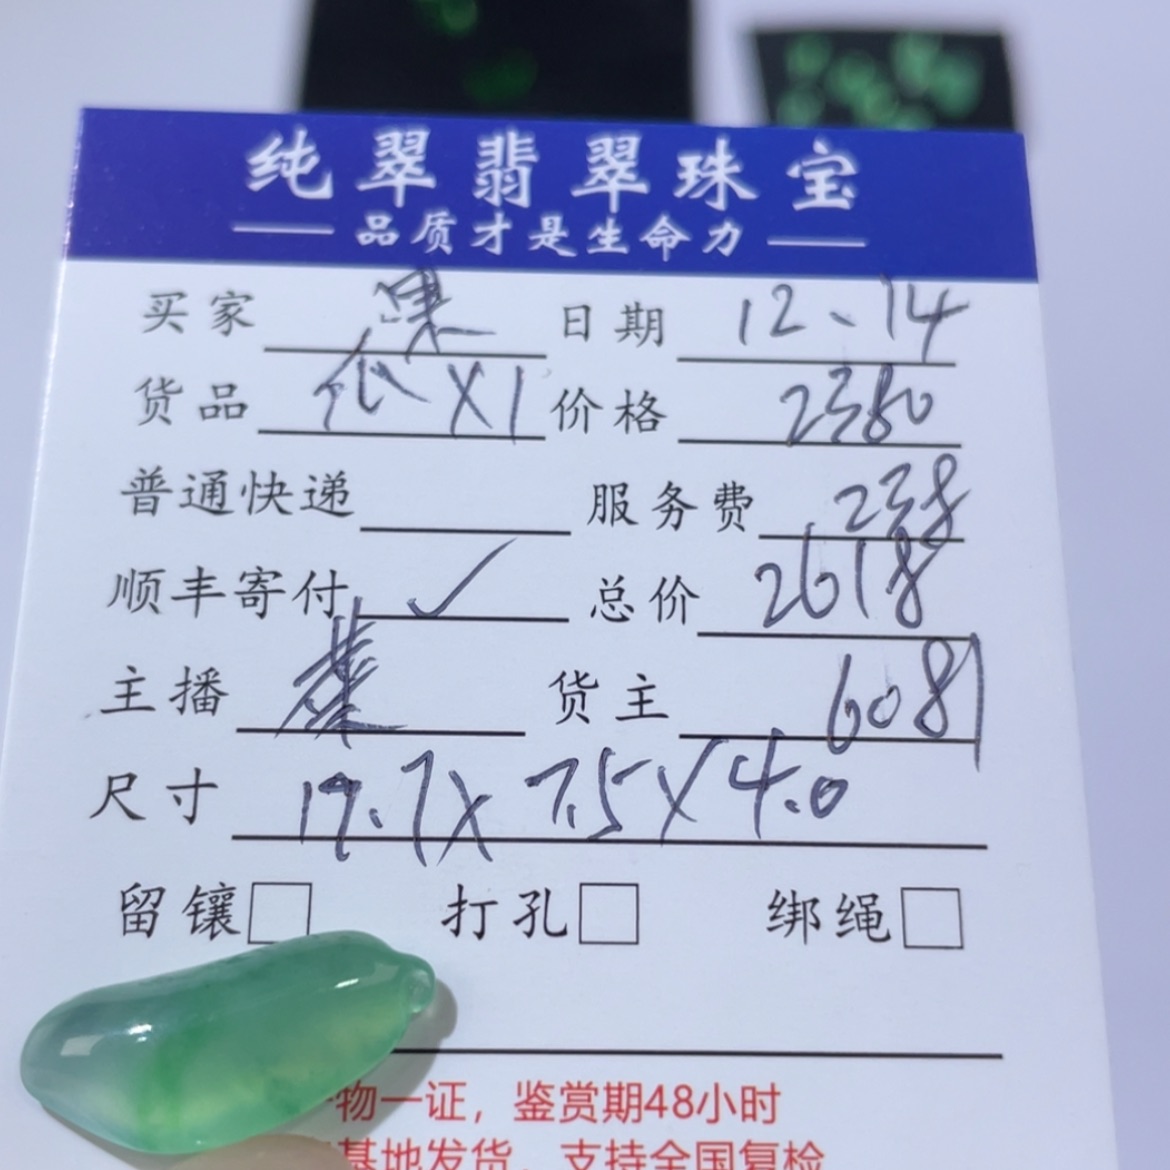 纯翠翡翠珠宝
品质才是生命力
买家 果 日期 12、14
货品 X1 价格 2380
普通快递 服务费 238
顺丰寄付 ✓ 总价 2618
主播 货主 6081
尺寸 19.7X7.5X4.0
留镶□ 打孔□ 绑绳□
物一证，鉴赏期48小时
基地发货，支持全国复检